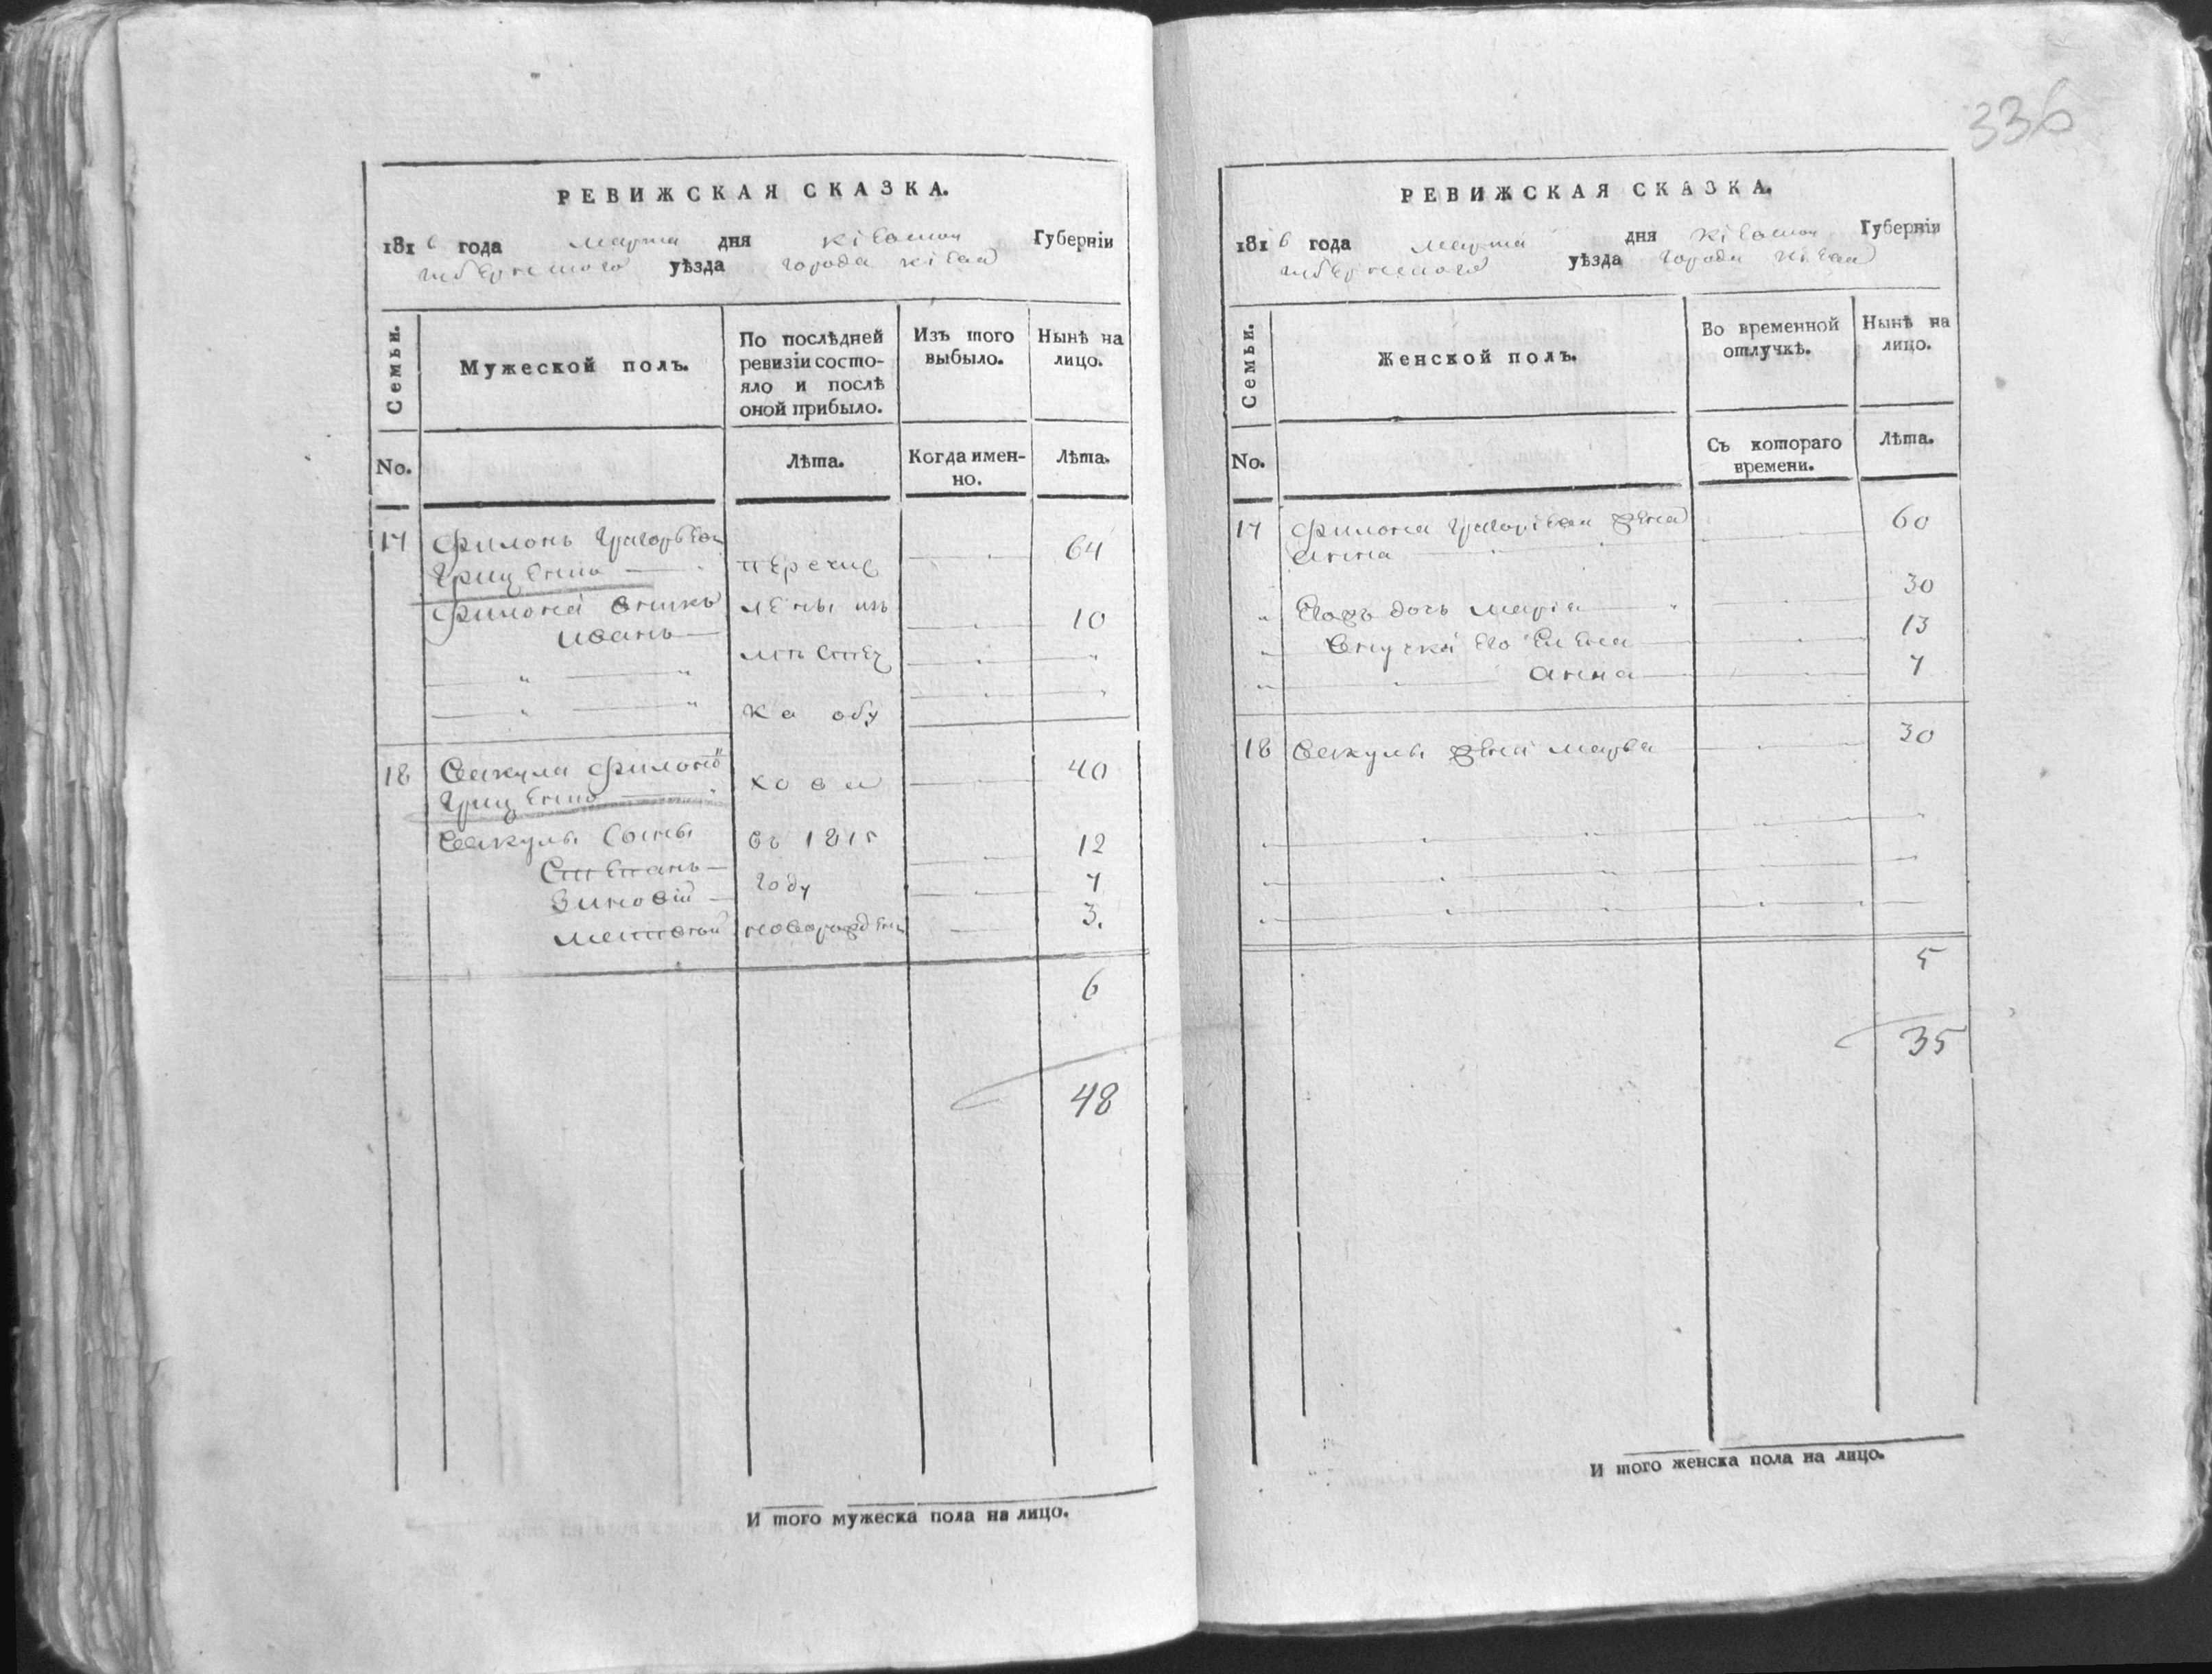 336
РЕВИЖСКАЯ СКАЗКА.
1816 года марта дня Кіевской Губерніи
уѣзда города Кіева
Семьи.
Мужеской полъ.
По послѣдней ревизіи состояло и послѣ оной прибыло.
Изъ того выбыло.
Нынѣ на лицо.
No.
Лѣта.
Когда именно.
Лѣта.
17 Филонъ Григорьевъ
Гриценко перечис 64
Филона внукъ лены изъ
Иванъ 10
ка обу
18 Вакула Филоно
Гриценко хова 40
Вакулы сыны въ 1815
Степанъ 12
Зиновій году 7
новорожден 3.
6
48
И того мужеска пола на лицо.
РЕВИЖСКАЯ СКАЗКА.
1816 года марта дня Кіевской Губерніи
уѣзда города Кіева
Семьи.
Женской полъ.
Во временной отлучкѣ.
Нынѣ на лицо.
No.
Съ котораго времени.
Лѣта.
17 Филона Григорієва жена 60
Анна
дочь Марія 30
Внучки его Елена 13
Анна 7
18 Вакулы жена Марѳа 30
5
35
И того женска пола на лицо.